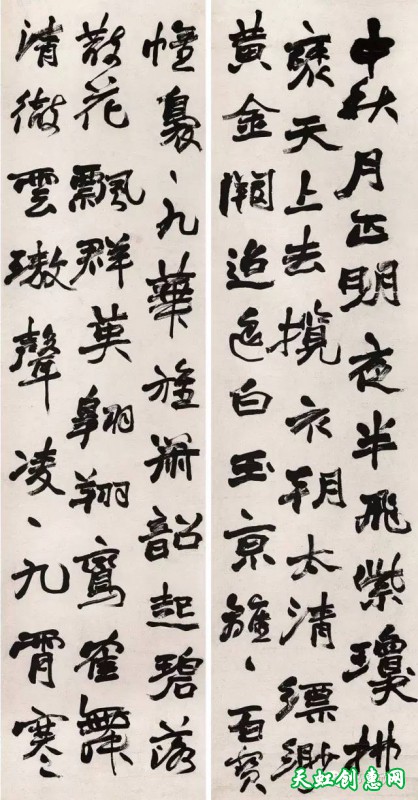 中秋月正明夜半飛紫瓊拂
褎天上去攬衣朝太清縹緲
黃金闕迢迢白玉京雝、百寶
幢裊、九華旌簫韶起碧落
散花飄群英翱翔鸞雀舞
清徹雲璈聲凌、九霄寒
天虹创惠网